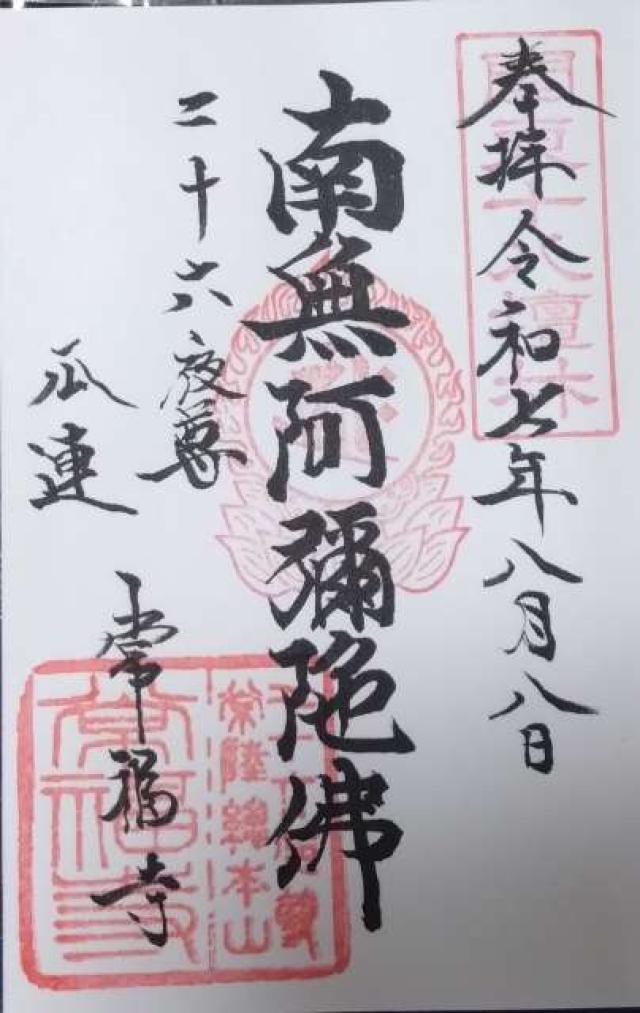 奉拝 令和七年八月八日
南無阿彌陀佛
二十六夜尊
瓜連
常福寺
常陸總本山
常福寺